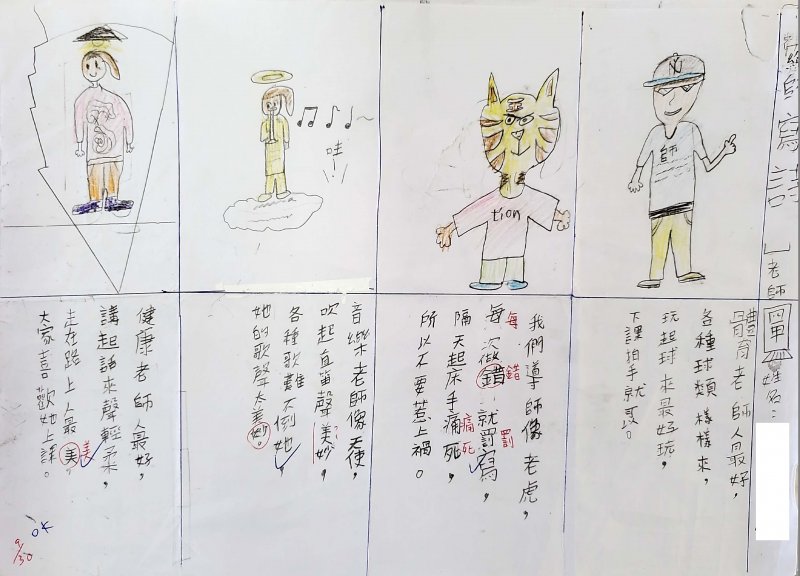 繪師寫詩」老師
姓名：
體育老師人最好，
各種球類樣樣來，
玩起球來最好玩，
下課拍手就歹。
我們導師像老虎，
每次做錯就罰寫，
隔天起床手痛死，
所以不要惹上禍。
每
錯
罰
痛死
音樂老師像天使，
吹起直笛聲美妙，
各種歌難不倒她，
她的歌聲太美妙。
健康老師人最好，
講起話來聲輕柔，
走在路上人最美，
大家喜歡她上課。
美
師
tion
哇!
NY
OK
9/30